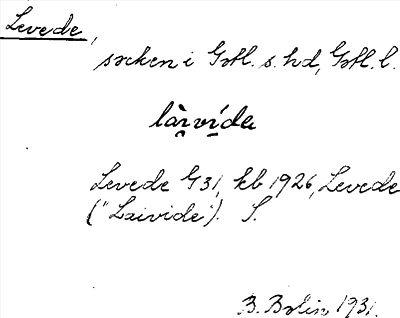 Levede,
socken i Gotl. s. hd, Gotl. l.
làivíde
Levede G 31, kb 1926, Levede
("Laivide"). S.
B. Bolin 1931.